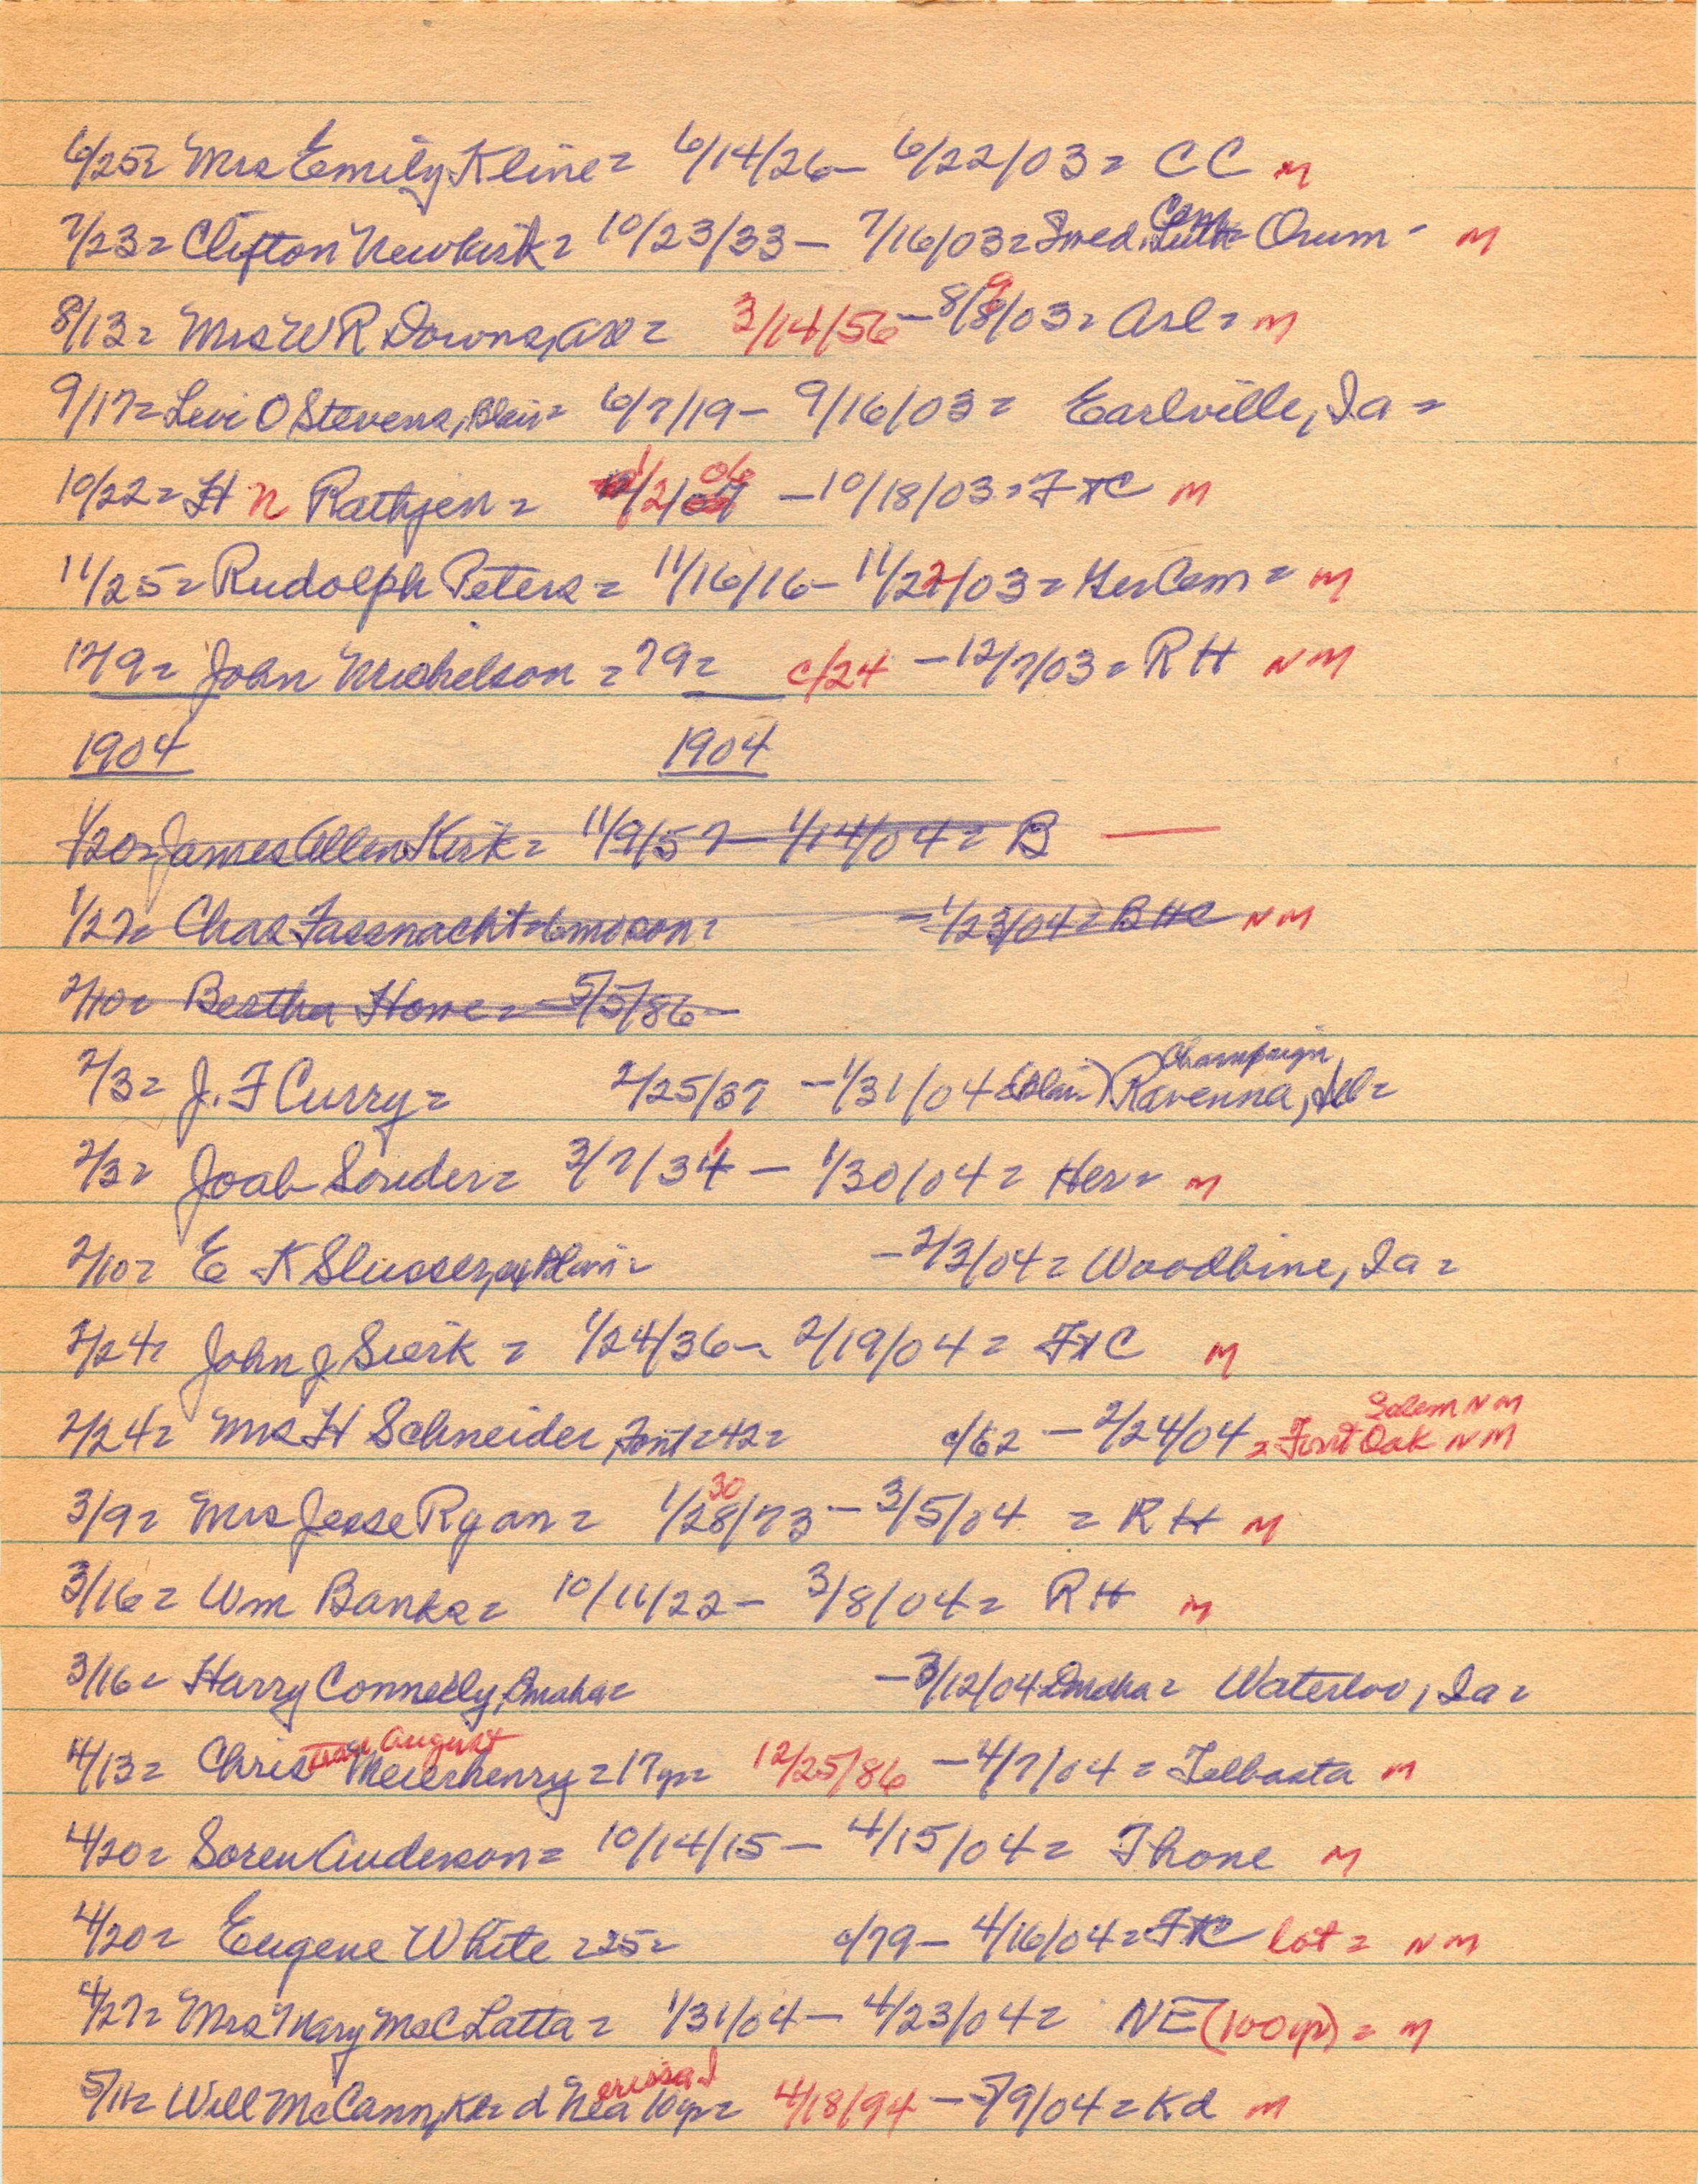 6/25= Mrs Emily Kline= 6/14/26- 6/22/03= CC M
7/23= Clifton Newkirk= 10/23/33- 7/16/03= Swed. Luth Cem Orum- M
8/13= Mrs W R Downs, = 3/14/56-8/9/03= Arl= M
9/17= Levi O Stevens, Blair= 6/7/19- 9/16/03= Earlville, Ia=
10/22= H N Rathjen= 1/2/06 -10/18/03= FtC M
11/25= Rudolph Peters= 11/16/16- 11/22/03= Ger Cem= M
12/9= John Michelson =79= c/24 -12/7/03= RH NM
1904 1904
1/20= James Allen Kirk= 11/9/57- 1/14/04= B
1/27= Chas Fassnacht=6mo son= -1/23/04= BHC NM
2/10= Bertha Howe= 5/5/86-
2/3= J. F Curry= 2/25/37 -1/31/04 (Blair) Champaign Ravenna,
2/3= Joab Souder= 3/7/31 - 1/30/04= Her= M
2/10= E K Slusser, Blair= -2/3/04= Woodbine, Ia=
2/24= John J Sierk= 1/24/36- 2/19/04= FtC M
2/24= Mrs H Schneider, Font=42= c/62 -2/24/04 = Font Oak NM Salem NM
3/9= Mrs Jesse Ryan= 1/28/73 30 -3/5/04 = RH M
3/16= Wm Banks= 10/11/22- 3/8/04= RH M
3/16= Harry Connelly, Omaha= -3/12/04 Omaha= Waterloo, Ia=
4/13= Christian August Meierhenry=17yr= 12/25/86 -4/7/04= Telbasta M
4/20= Soren Anderson= 10/14/15- 4/15/04= Thone M
4/20= Eugene White =25= c/79- 4/16/04= FtC lot= NM
4/27= Mrs Mary McC Latta= 1/31/04- 4/23/04= NE (100yr)= M
5/11= Will McCann, Kd= d Nerissa I 10yr= 4/18/94 -5/9/04= Kd M